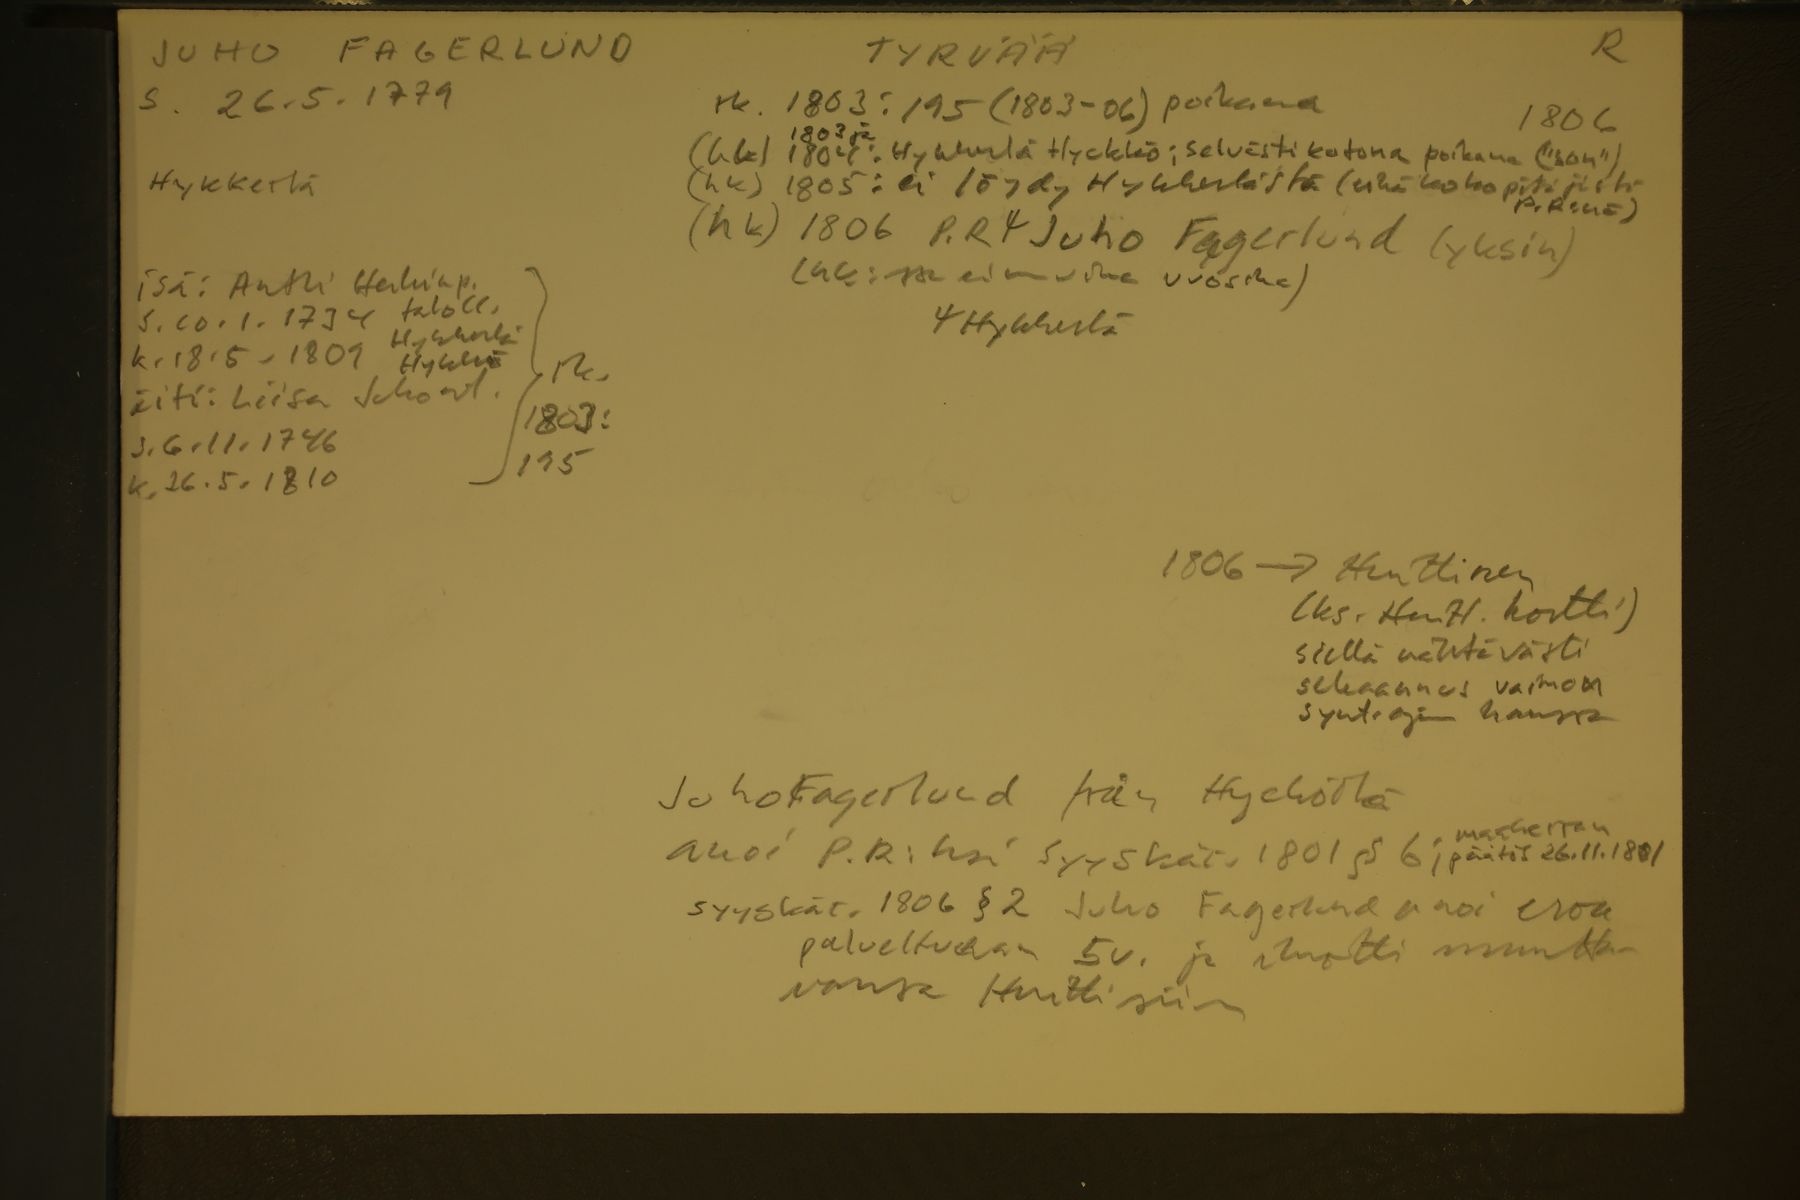 JUHO FAGERLUND
TYRVÄÄ
R
S. 26.5.1779
rk. 1803: 195 (1803-06) poikana
1806
1803 ja
(hk) 1804: Hykkerlä Hyckkö; selvästi kotona poikana ("son")
Hykkerlä
(hk) 1805: ei löydy Hykkerlästä (eikä koko pitäjästä
P.R:nä)
(hk) 1806 P.R. 4 Juho Fagerlund (yksin)
(hk: ssa ei mitään vuosina)
4 Hykkerlä
isä: Antti Heikinp.
s. 10.1.1734 taloll.
Hykkerlä
k. 18.5.1809 Hykkö
äiti: Liisa Juhont.
s. 6.11.1746
k. 26.5.1810
rk.
1803:
195
1806 → Hunttinen
(ks. Huntt. kortti)
siellä nähtävästi
sekaannus vaimon
synt.ajan kanssa
Juho Fagerlund från Hyckölä
anoi P.R:ksi syyskär. 1801 § 6; maaherran
päätös 26.11.1801
syyskär. 1806 § 2 Juho Fagerlund anoi eroa
palveltuaan 5 v. ja ilmoitti muutta-
vansa Hunttisiin